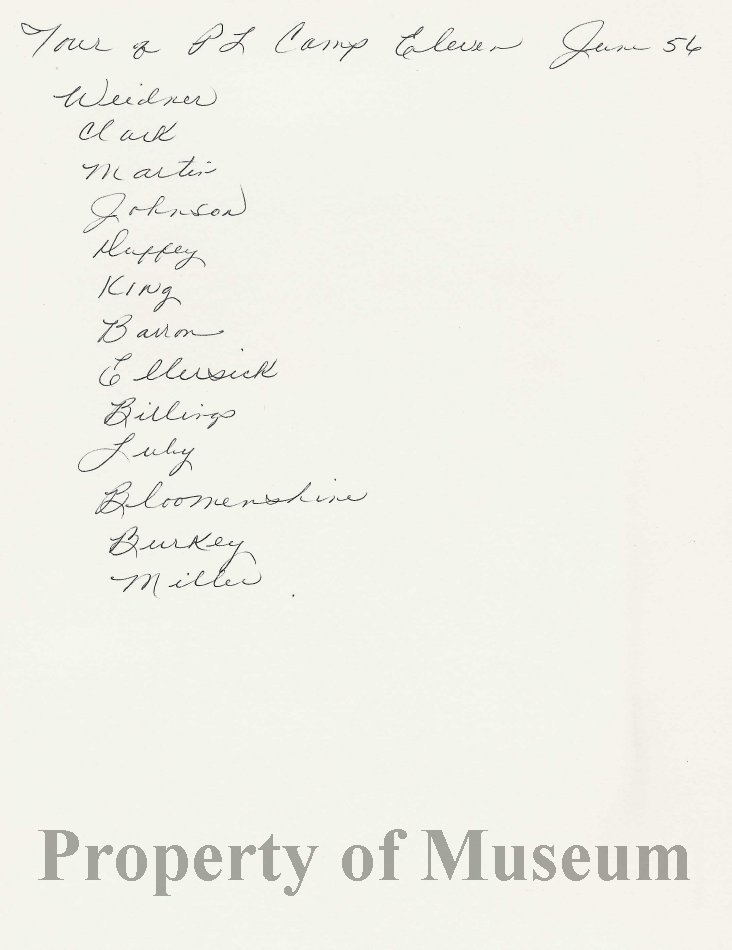 Tour of PL Camp Eleven June 56
Weidner
Clark
Martin
Johnson
Duffey
King
Barron
Ellersick
Billings
Luby
Bloomenshine
Burkey
Miller
Property of Museum